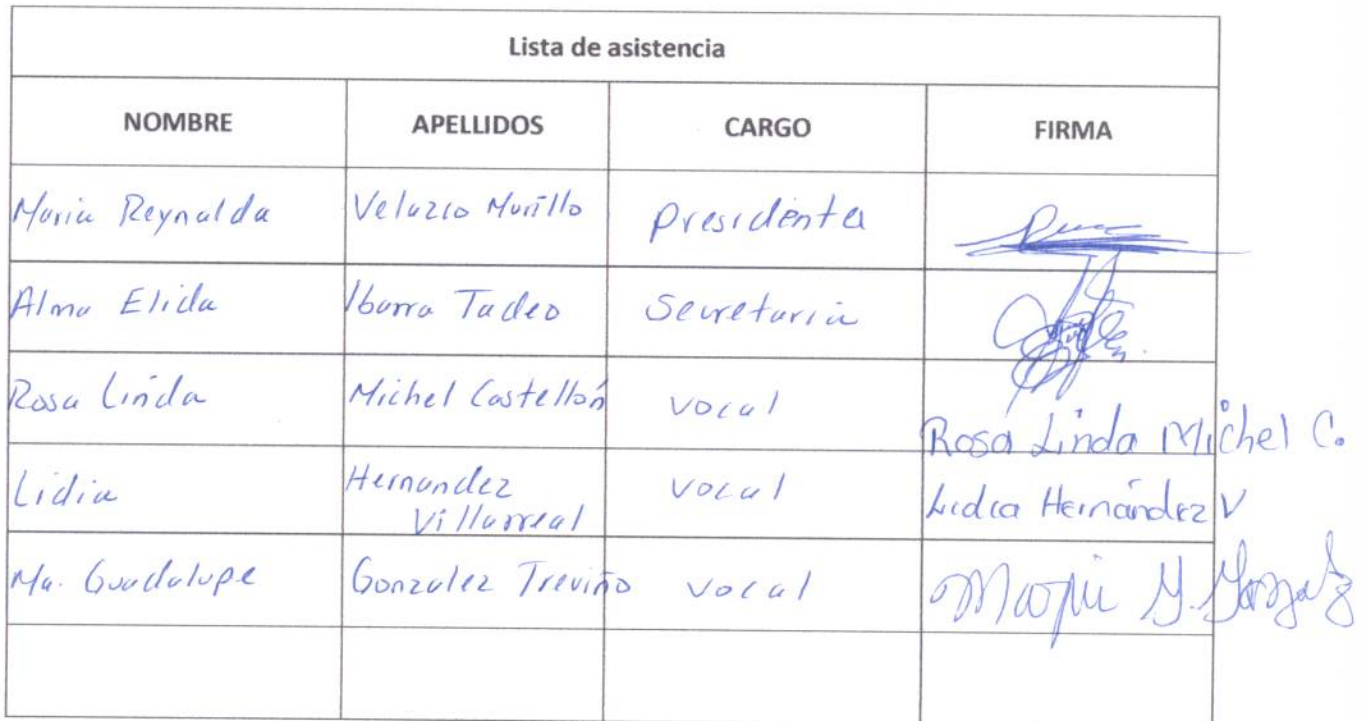 Lista de asistencia
NOMBRE APELLIDOS CARGO FIRMA
Maria Reynalda Velazco Murillo Presidenta
Alma Elida Ibarra Tadeo Secretaria
Rosa Linda Michel Castellón vocal Rosa Linda Michel C.
Lidia Hernandez Villarreal vocal Lidia Hernández V
Ma. Guadalupe Gonzalez Treviño vocal